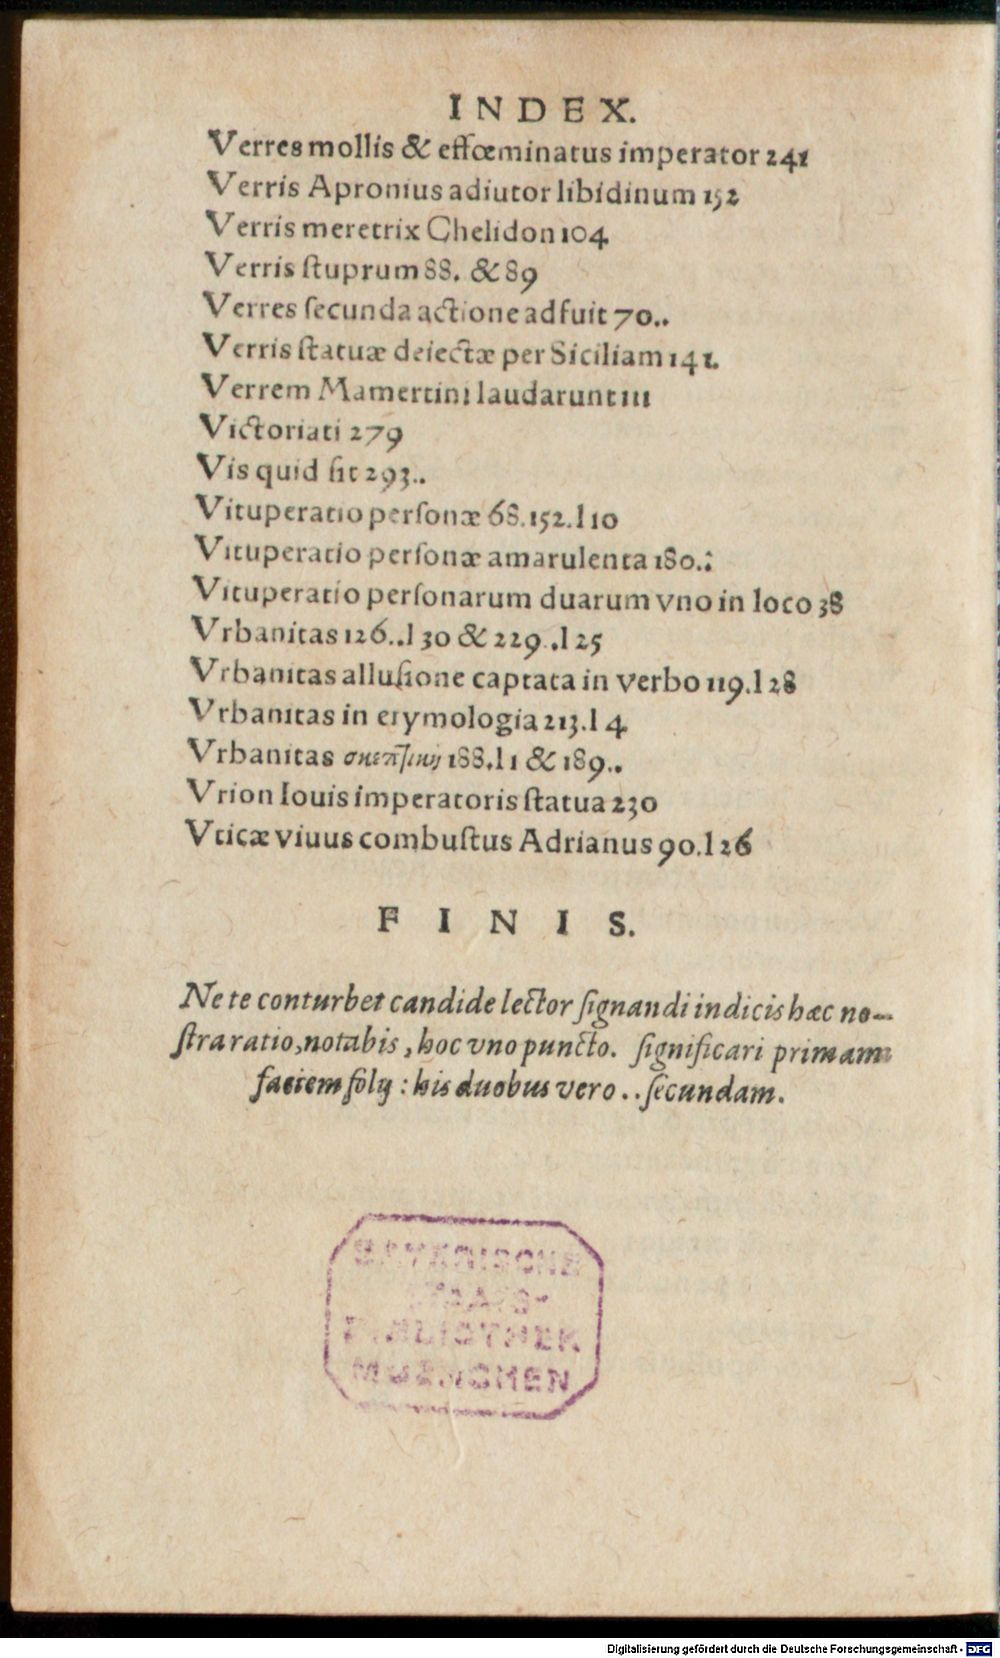 INDEX.
Verres mollis & effœminatus imperator 241
Verris Apronius adiutor libidinum 152
Verris meretrix Chelidon 104
Verris ſtuprum 88. & 89
Verres ſecunda actione adfuit 70..
Verris ſtatuæ deiectæ per Siciliam 141.
Verrem Mamertini laudarunt 111
Victoriati 279
Vis quid ſit 293..
Vituperatio perſonæ 68.152.l 10
Vituperatio perſonæ amarulenta 180.:
Vituperatio perſonarum duarum vno in loco 38
Vrbanitas 126..l 30 & 229..l 25
Vrbanitas alluſione captata in verbo 119.l 28
Vrbanitas in etymologia 213.l 4
Vrbanitas 188.l 1 & 189..
Vrion Iouis imperatoris ſtatua 230
Vticæ viuus combuſtus Adrianus 90.l 26
FINIS.
Ne te conturbet candide lector ſignandi indicis hæc no-
ſtra ratio, notabis, hoc vno puncto. ſignificari primam
faciem folij: his duobus vero .. ſecundam.
BAYERISCHE
STAATS-
BIBLIOTHEK
MUENCHEN
Digitalisierung gefördert durch die Deutsche Forschungsgemeinschaft - DFG